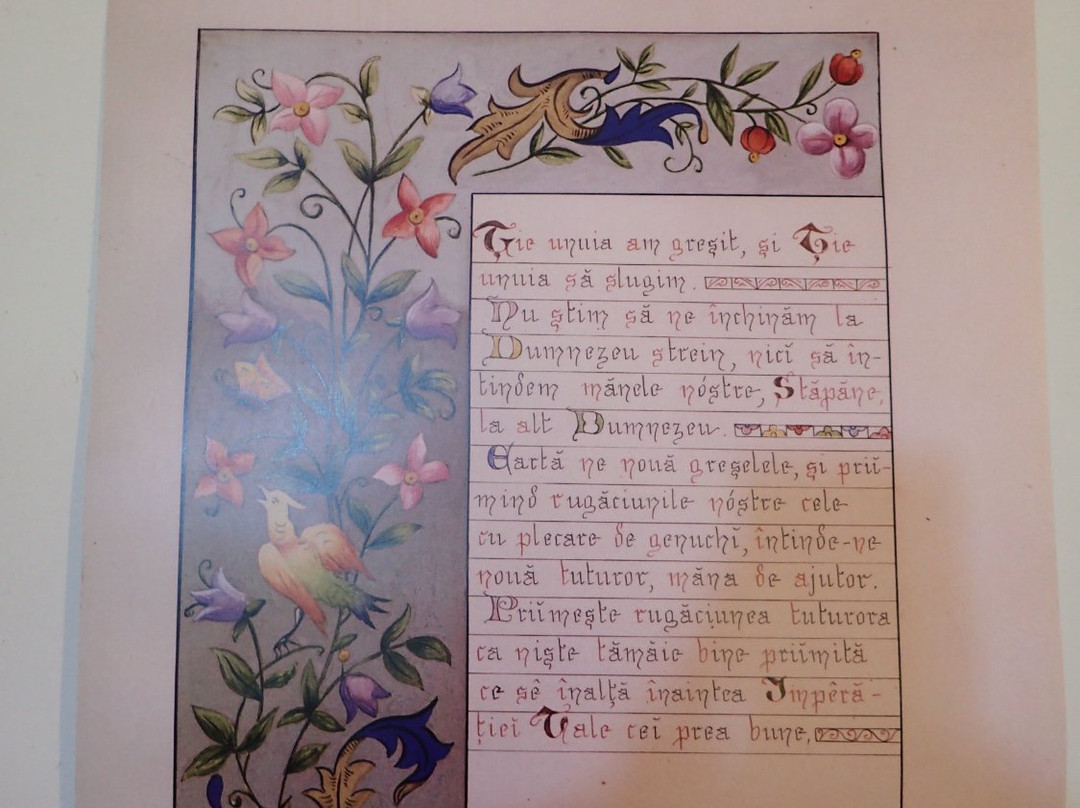 Ție unuia am greșit, și Ție
unuia să slugim.
Nu știm să ne închinăm la
Dumnezeu strein, nicĭ să în-
tindem mănele nóstre, Stăpăne,
la alt Dumnezeu.
Eartă ne nouă greșelele, și priĭ-
mind rugăciunile nóstre cele
cu plecare de genuchĭ, întinde-ne
nouă tuturor, măna de ajutor.
Priĭmește rugăciunea tuturora
ca niște tămăie bine priĭmită
ce sê înalță înaintea Impêră-
țieĭ Tale ceĭ prea bune,